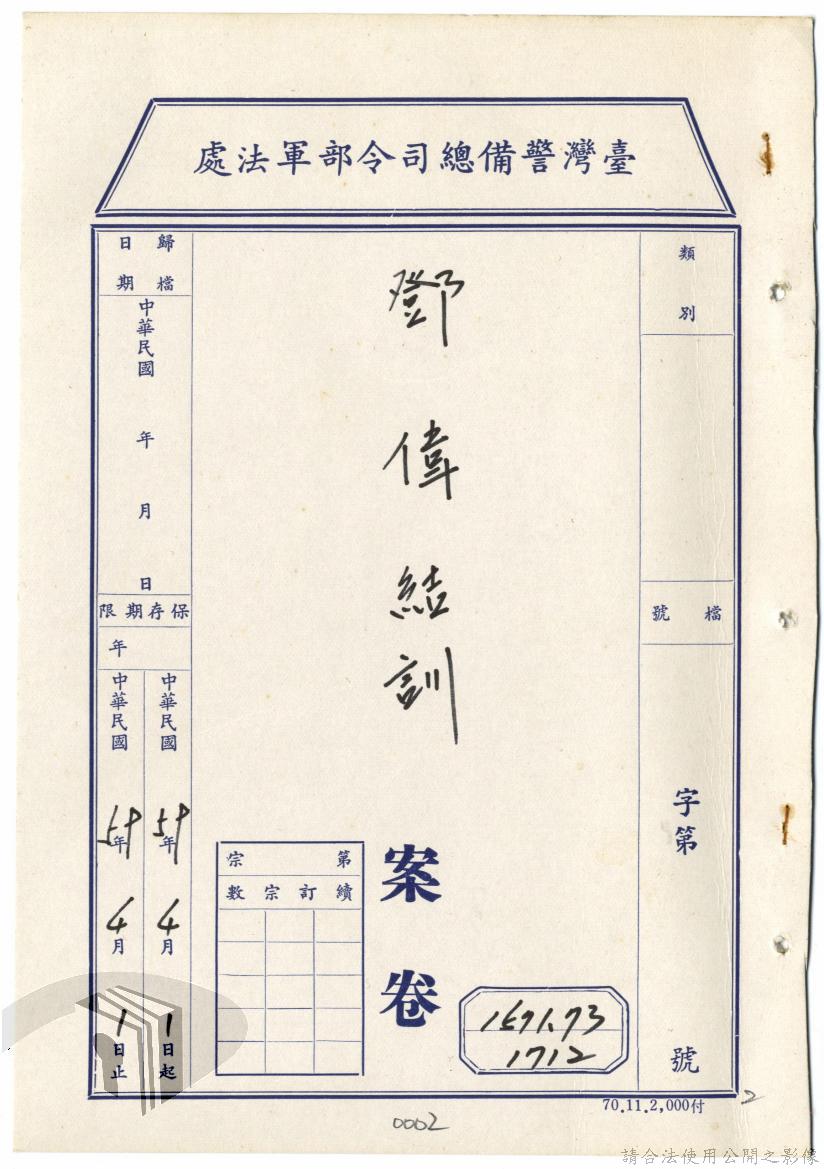 臺灣警備總司令部軍法處
類別
檔號
字第
號
鄧偉結訓
案卷
第宗
續訂宗數
1571.73
1712
歸檔日期
中華民國 年 月 日
保存期限
年
中華民國59年4月1日起
中華民國59年4月1日止
70.11.2,000付
2
0002
請合法使用公開之影像